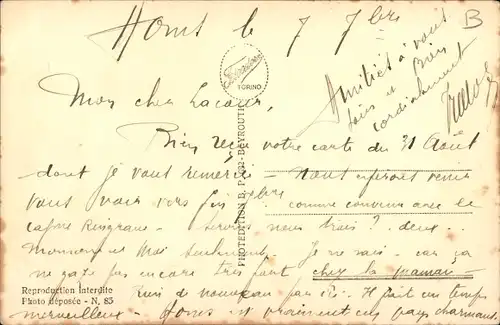 Homs le 7 7bre
B
Amitiés à vous
tous et Bien
cordialement
Ferrania
TORINO
Mon cher Lacour,
Bien reçu votre carte du 31 Août
dont je vous remercie - Nous espérons venir
vous voir vers fin 7bre comme convenu avec le
Serons nous trois? deux..
Monsieur et Moi seulement. Je ne sais - car ça
ne gaze pas encore très fort chez la maman -
Rien de nouveau par ici. Il fait un temps
merveilleux - Homs est vraiment un pays charmant.
PHOTEDITION B, P 252-BEYROUTH
Reproduction interdite
Photo déposée - N. 83